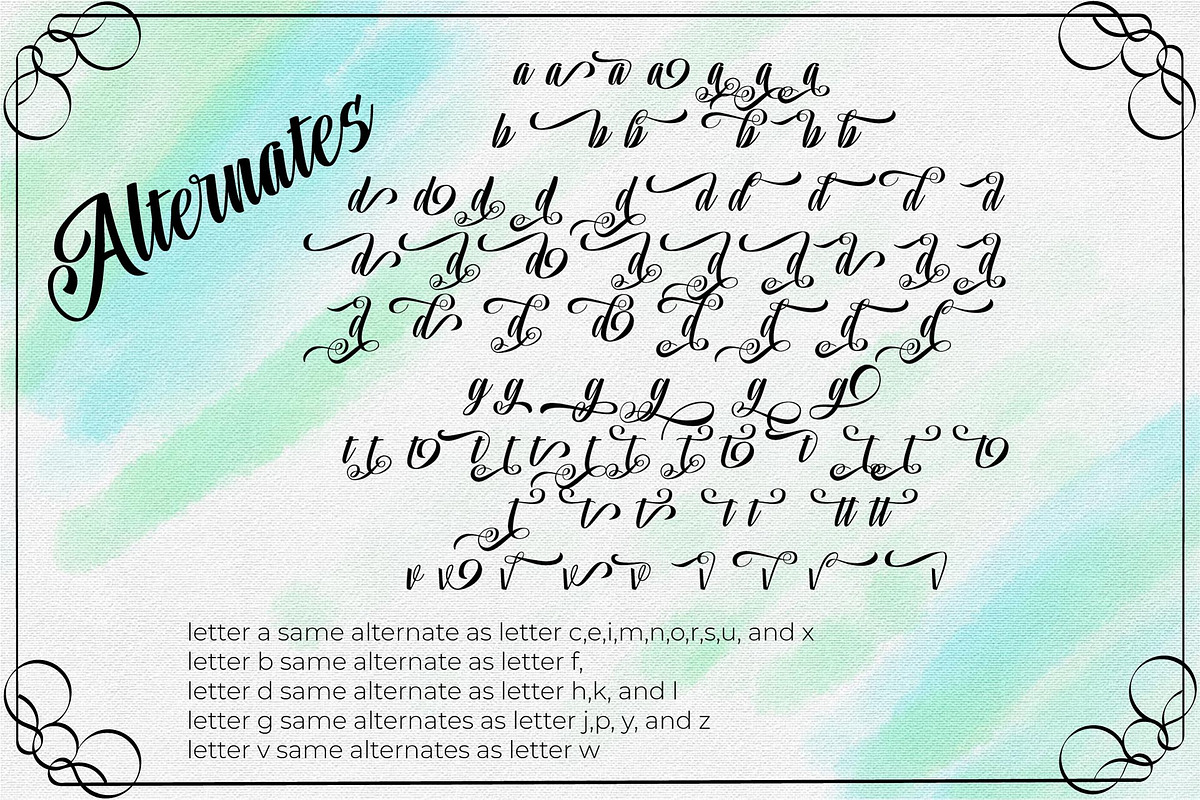 Alternates
a a a a a a a
b b b b b b
d d d d d d d d d d
d d d d d d d d d
d d d d d d d d
g g g g g g
t t t t t t t t t t t t t t
t t t t t tt tt
v v v v v v v v v
letter a same alternate as letter c,e,i,m,n,o,r,s,u, and x
letter b same alternate as letter f,
letter d same alternate as letter h,k, and l
letter g same alternates as letter j,p, y, and z
letter v same alternates as letter w